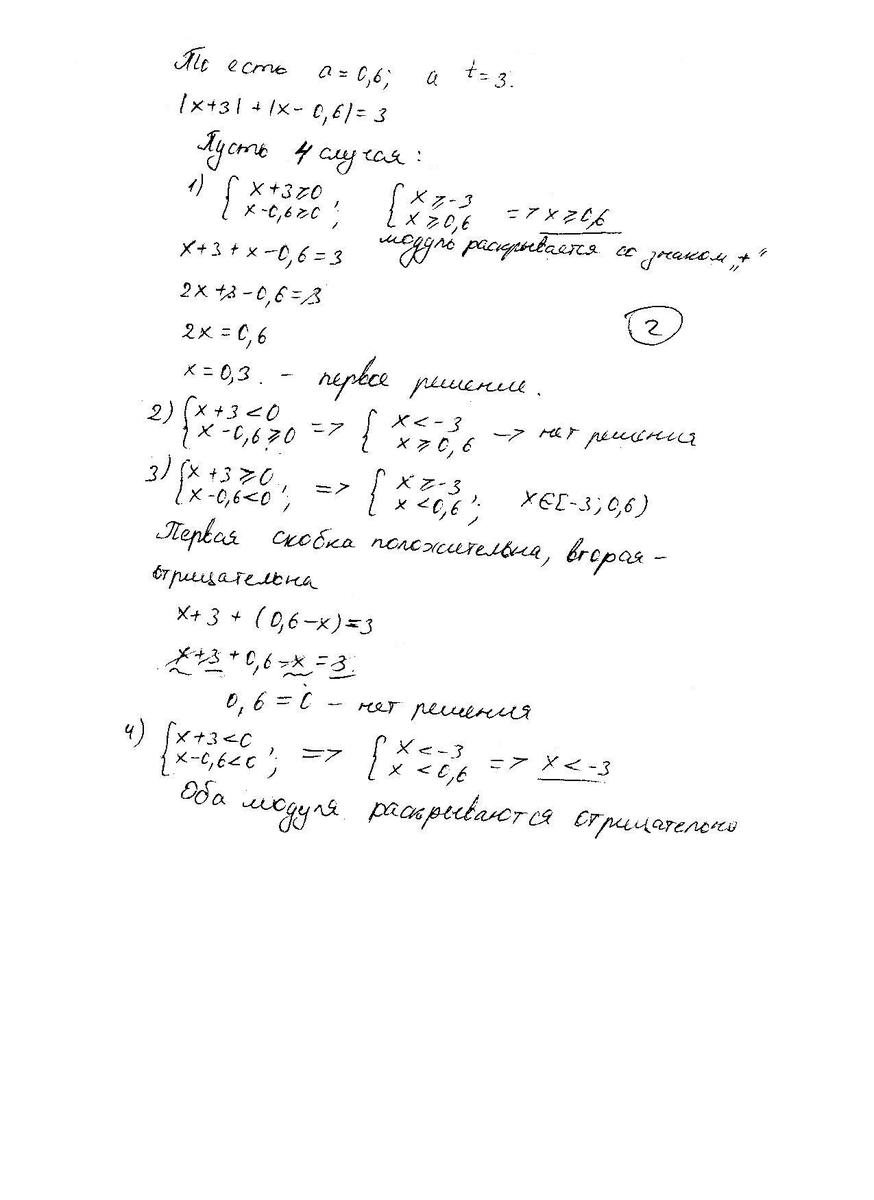 То есть a = 0,6; а t = 3.
|x+3| + |x - 0,6| = 3
Пусть 4 случая:
1) { x+3≥0 x-0,6≥0 ; { x≥-3 x≥0,6 => x≥0,6
модуль раскрывается со знаком „+“
x+3+x-0,6=3
2x+3-0,6=3
2x=0,6
2
x=0,3. - первое решение.
2) { x+3<0 x-0,6≥0 => { x<-3 x≥0,6 -> нет решения
3) { x+3≥0 x-0,6<0 ; => { x≥-3 x<0,6 ; x∈[-3;0,6)
Первая скобка положительна, вторая -
отрицательна
x+3+(0,6-x)=3
x+3+0,6-x=3.
0,6=0 - нет решения
4) { x+3<0 x-0,6<0 ; => { x<-3 x<0,6 => x<-3
Оба модуля раскрываются отрицательно